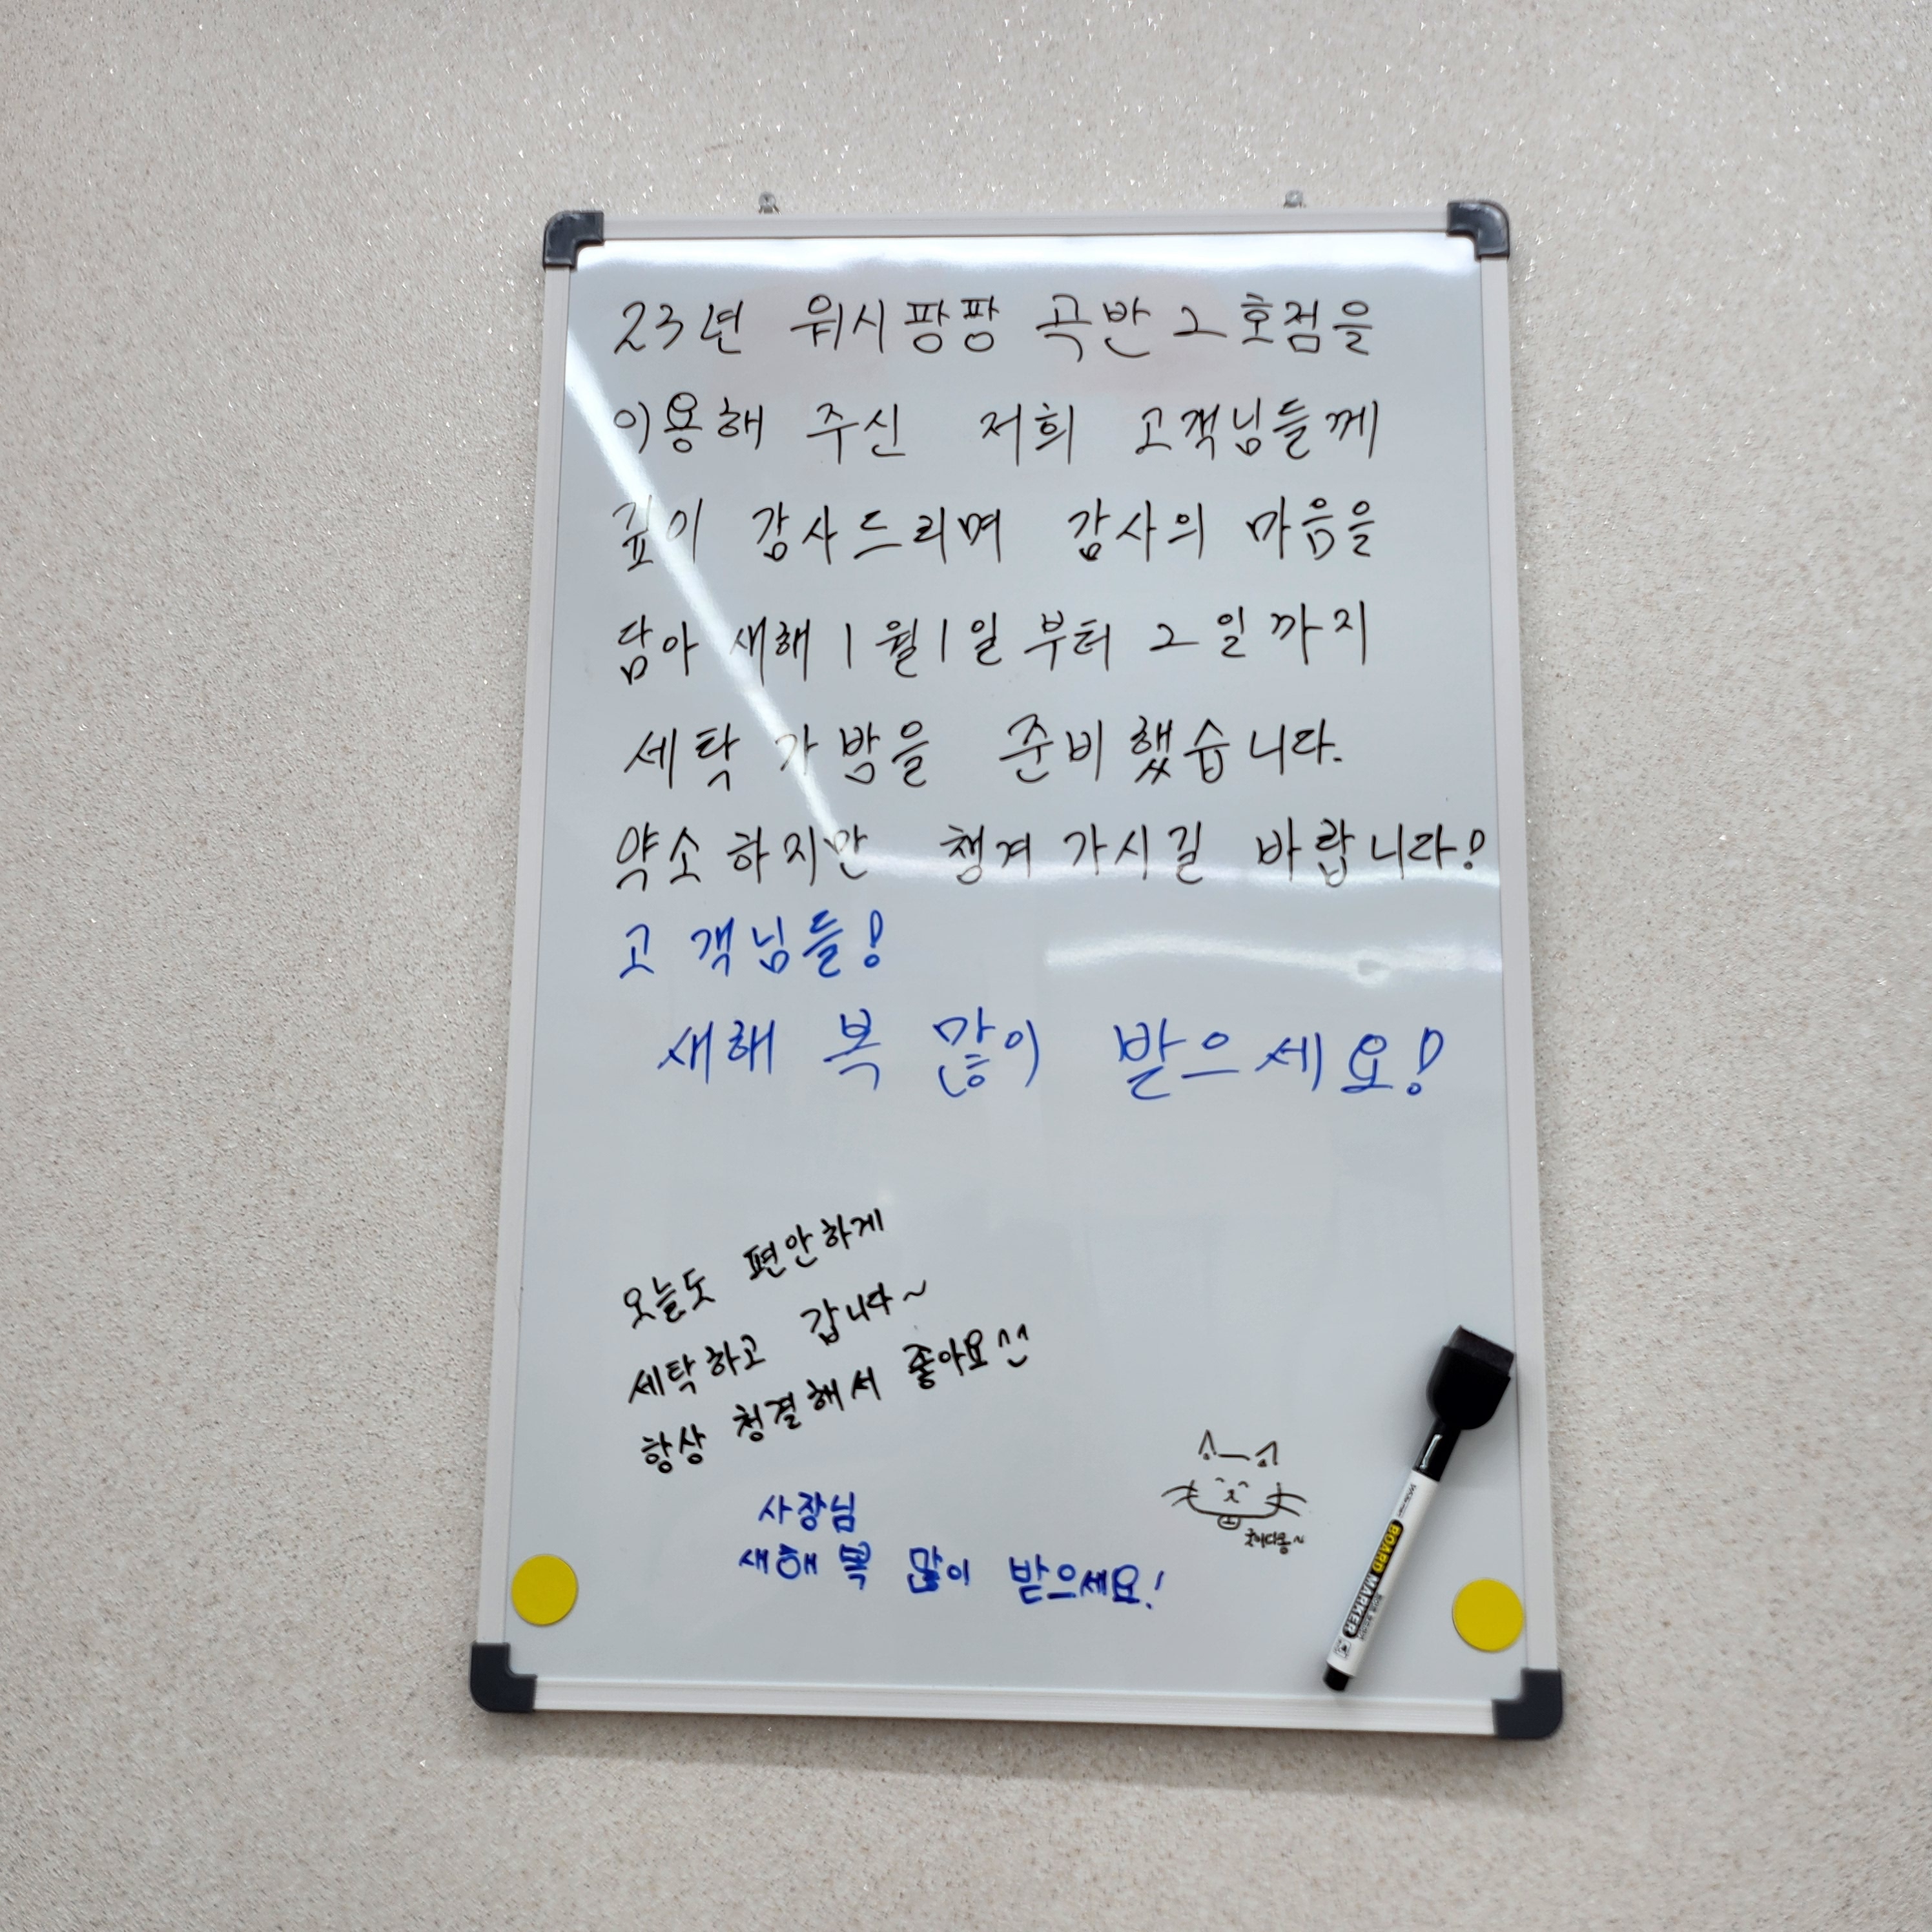 23년 워시팡팡 곡반 2호점을
이용해 주신 저희 고객님들께
깊이 감사드리며 감사의 마음을
담아 새해 1월1일부터 2일까지
세탁 가방을 준비했습니다.
약소하지만 챙겨가시길 바랍니다!
고객님들!
새해 복 많이 받으세요!
오늘도 편안하게
세탁하고 갑니다~
항상 청결해서 좋아요^^
사장님
새해 복 많이 받으세요!
BOARD MARKER